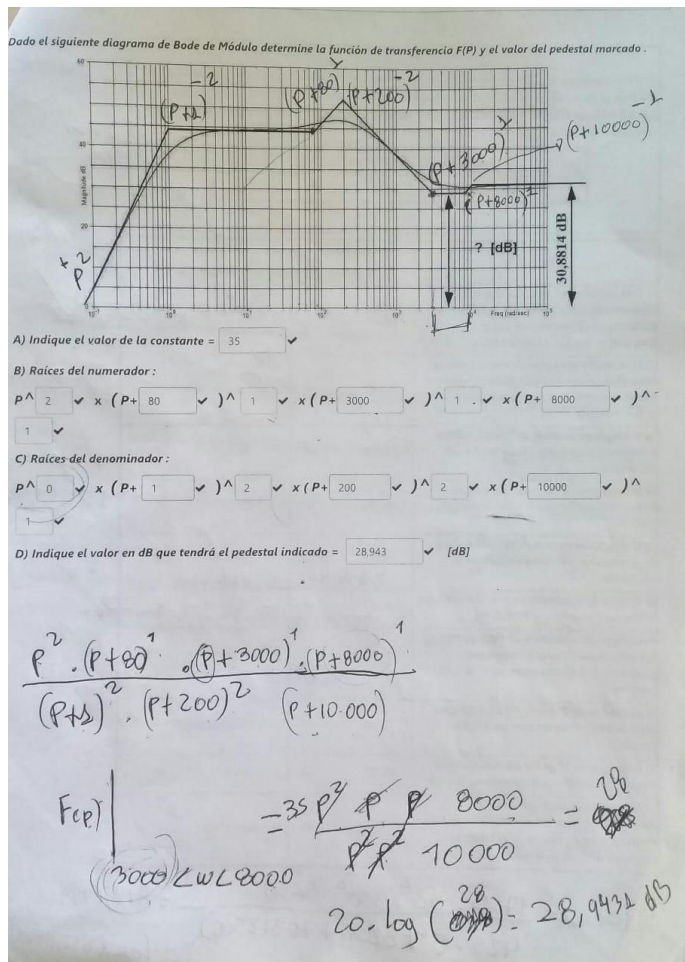 Dado el siguiente diagrama de Bode de Módulo determine la función de transferencia F(P) y el valor del pedestal marcado .
60
-2
(P+1)
(P+80)^1
(P+200)^-2
(P+3000)^1
(P+10000)^-1
40
Magnitude dB
20
(P+8000)^1
? [dB]
30,8814 dB
+ P^2
0
10^-1 10^0 10^1 10^2 10^3 10^4 Freq (rad/sec) 10^5
A) Indique el valor de la constante = 35 ✔
B) Raíces del numerador :
P^ 2 ✔ x ( P+ 80 ✔ )^ 1 ✔ x ( P+ 3000 ✔ )^ 1 ✔ x ( P+ 8000 ✔ )^
1 ✔
C) Raíces del denominador :
P^ 0 ✔ x ( P+ 1 ✔ )^ 2 ✔ x ( P+ 200 ✔ )^ 2 ✔ x ( P+ 10000 ✔ )^
1 ✔
D) Indique el valor en dB que tendrá el pedestal indicado = 28,943 ✔ [dB]
P^2 . (P+80)^1 . (P+3000)^1 . (P+8000)^1
(P+1)^2 . (P+200)^2 (P+10.000)
F(P) = 35 P^2 P P 8000 = 28
P^2 P^2 10000
3000 < W < 8000
20. log (28) = 28,9431 dB